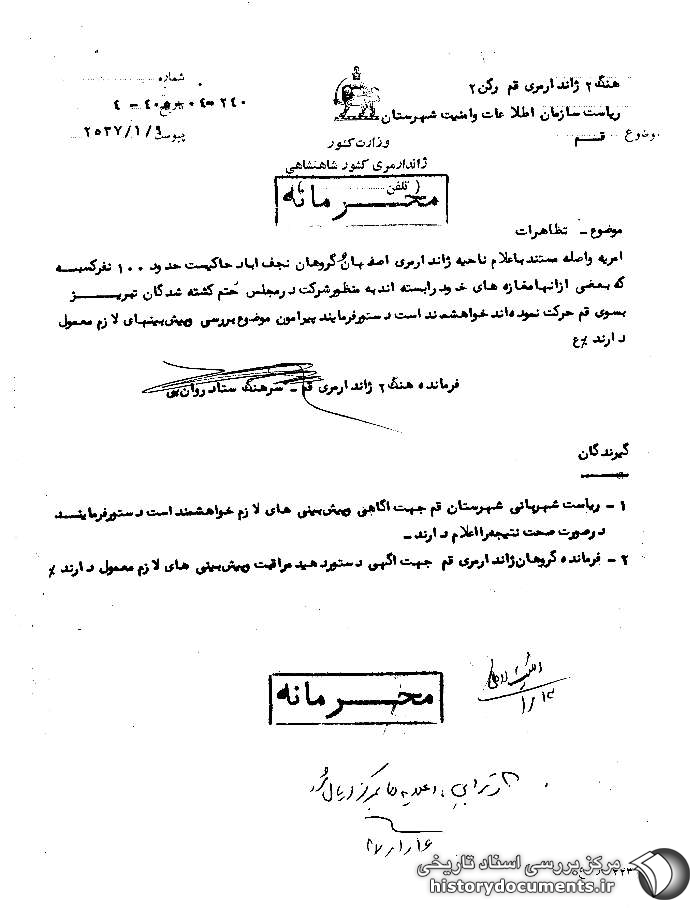 هنگ ۲ ژاندارمری قم رکن ۲
شماره
ریاست سازمان اطلاعات وامنیت شهرستان
۲۴۰-۰۴-۴۰۰-۴
موضوع قم
پیوست ۲۵۳۷/۱/۹
وزارت کشور
ژاندارمری کشور شاهنشاهی
(تلفن )
محرمانه
موضوع - تظاهرات
امریه واصله مستند باعلام ناحیه ژاندارمری اصفهان گروهان نجف اباد حاکیست حدود ۱۰۰ نفرکسبه
که بعضی ازانهامغازه های خود رابسته اند به منظورشرکت درمجلس ختم کشته شدگان تبریز
بسوی قم حرکت نموده اند خواهشمند است دستورفرمایند پیرامون موضوع بررسی وپیش بینیهای لازم معمول
دارند ع
فرمانده هنگ ۲ ژاندارمری قم - سرهنگ ستاد روان بی
گیرندگان
۱- ریاست شهربانی شهرستان قم جهت اگاهی وپیش بینی های لازم خواهشمند است دستورفرمایند
درصورت صحت نتیجه رااعلام دارند -
۲- فرمانده گروهان ژاندارمری قم جهت اگهی دستوردهید مراقبت وپیش بینی های لازم معمول دارند ٪
محرمانه
۱/۱۴
۳۷/۱/۱۶
مرکز بررسی اسناد تاریخی
historydocuments.ir
۲۲۳